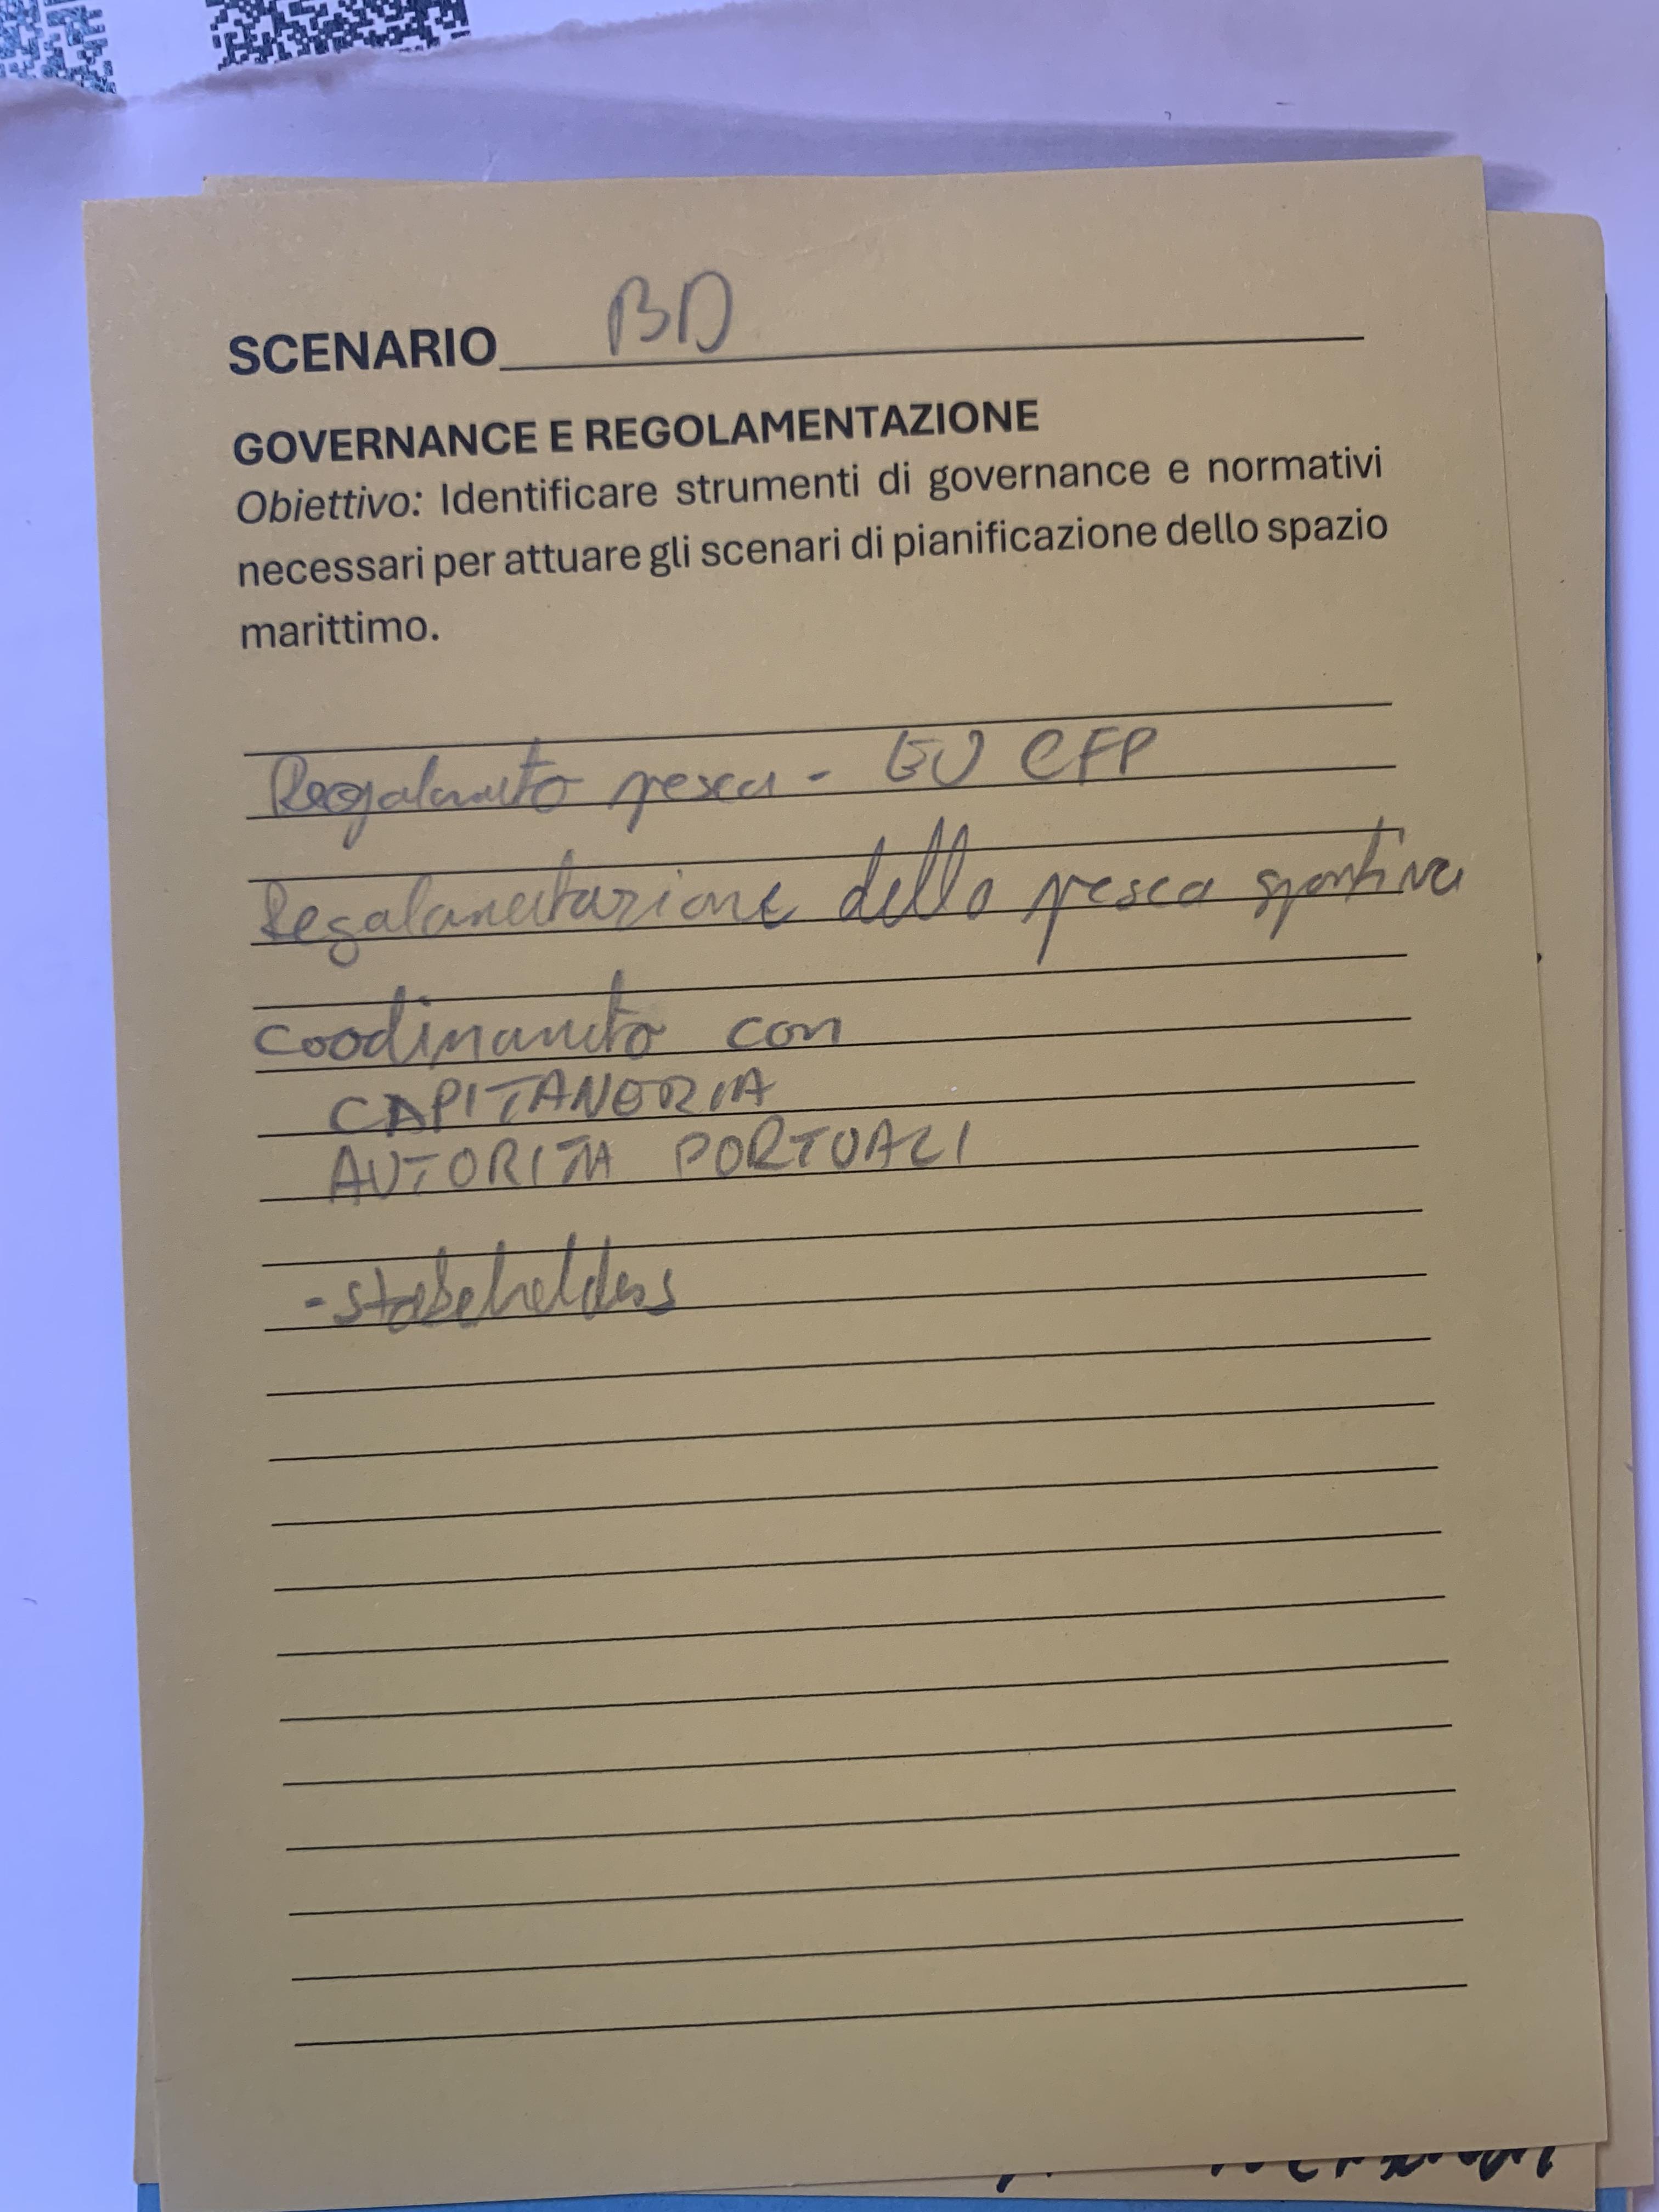 SCENARIO BD
GOVERNANCE E REGOLAMENTAZIONE
Obiettivo: Identificare strumenti di governance e normativi
necessari per attuare gli scenari di pianificazione dello spazio
marittimo.
Regolamento pesca - EU CFP
Regolamentazione della pesca sportiva
Coodinamento con
CAPITANERIA
AUTORITA PORTUALI
- stakeholders